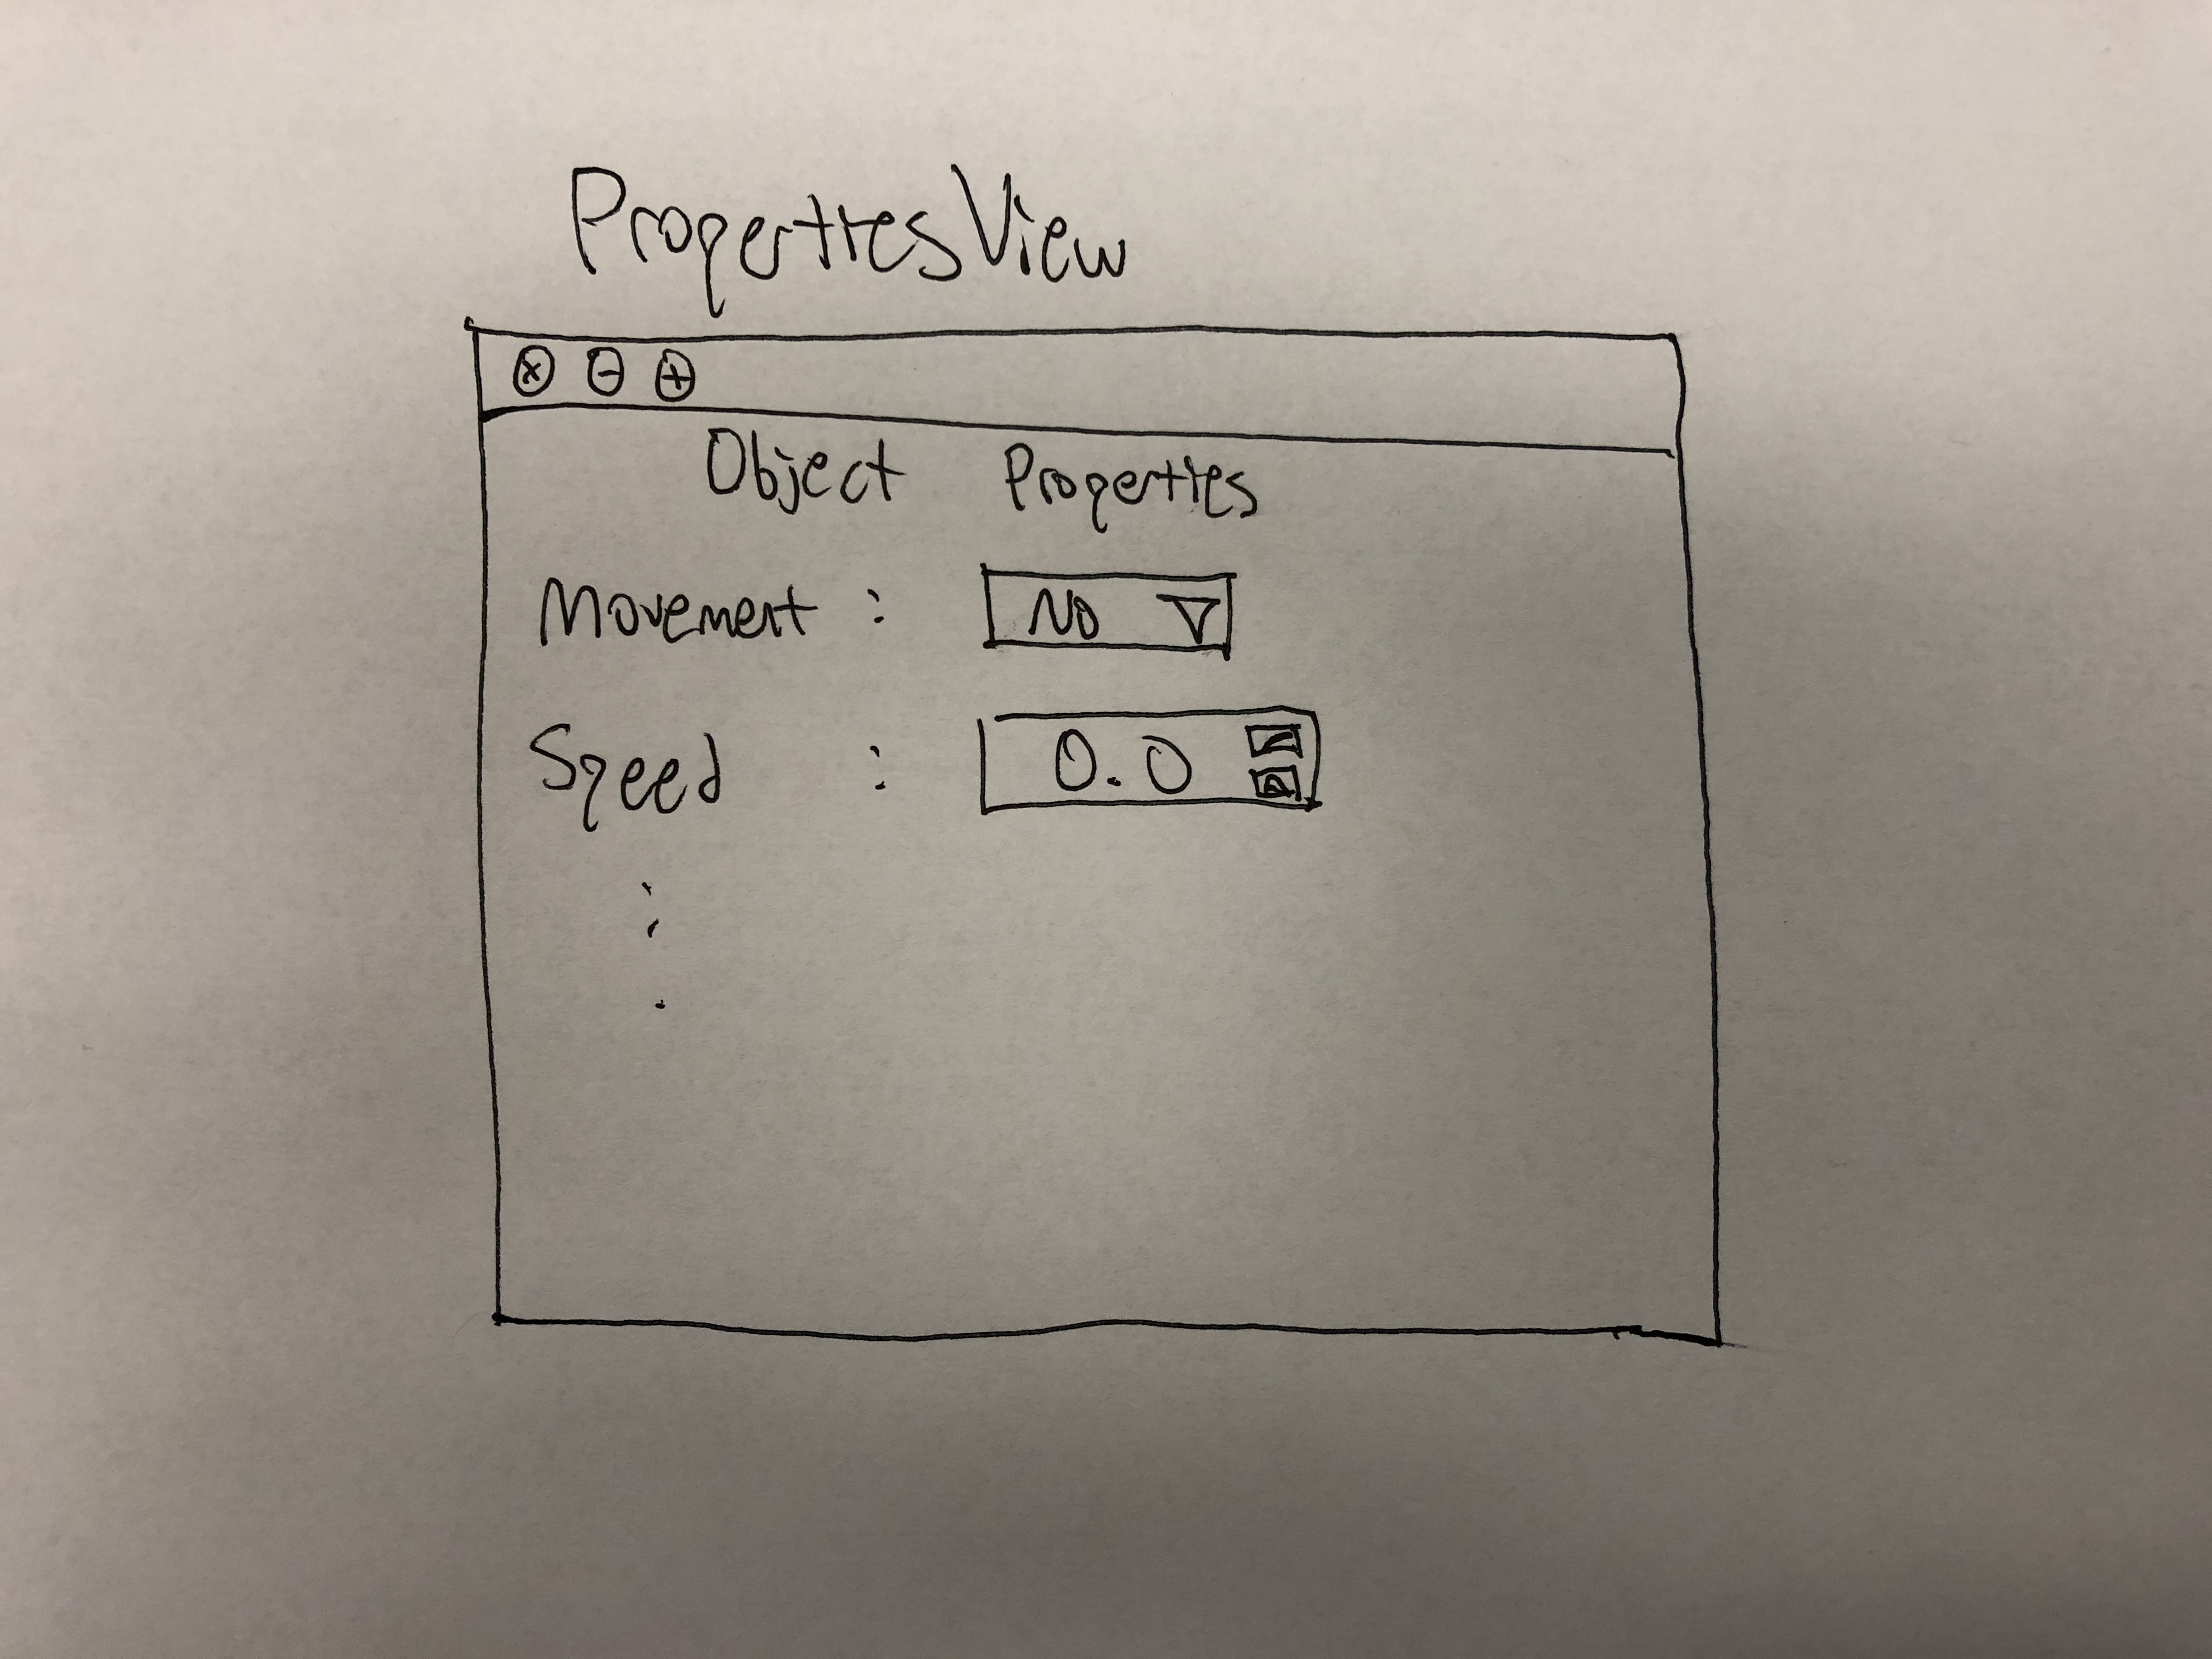 PropertiesView
Object Properties
Movement : No
Speed : 0.0